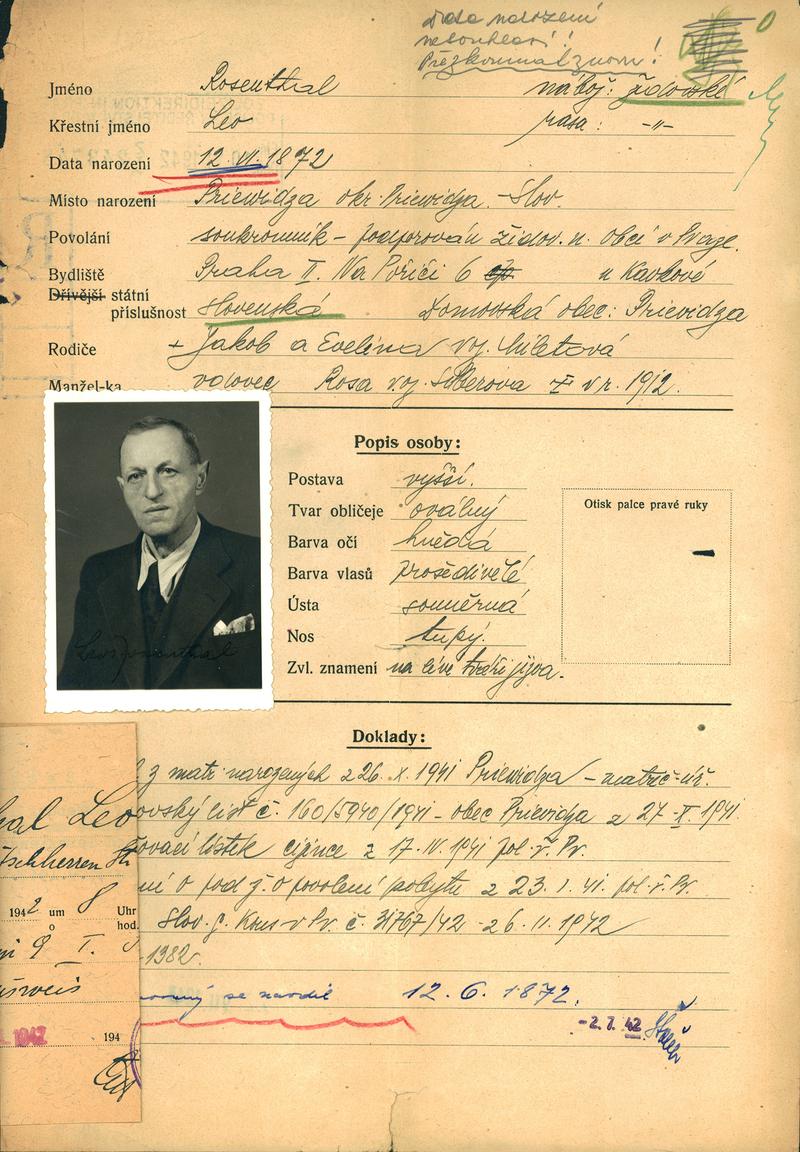 Data narození
nesouhlasí!
Přezkoumat znovu!
0
Jméno Rosenthal nábož: židovské
Křestní jméno Leo rasa: -"-
Data narození 12. VI. 1872
Místo narození Priewidza okr. Priewidza. - Slov.
Povolání soukromník - podporován židov. n. obcí v Praze.
Bydliště Praha II. Na Poříčí 6 u Kavkové
Dřívější státní
příslušnost Slovenská Domovská obec: Priewidza
Rodiče + Jakob a Evelina roz.
Manžel-ka vdovec Rosa roz. v r. 1912.
Popis osoby:
Postava vyšší.
Tvar obličeje oválný
Barva očí hnědá
Barva vlasů prošedivělé
Ústa souměrná
Nos tupý.
Zvl. znamení na levé tváři jizva.
Otisk palce pravé ruky
Doklady:
z matr. narozených z 26. X. 1941 Priewidza - matrič. úř.
ovský list č. 160/5940/1941 - obec Priewidza z 27. X. 1941.
ovací lístek cizince z 17. IV. 1941 pol. ř. Pr.
ní o pod ž. o povolení pobytu z 23. 1. 41. pol. ř. Pr.
Slov. g. Kons v Pr. č. 31767/42 - 26. 11. 1942
1382.
se narodil 12. 6. 1872.
-2. 7. 42
al Leo
tschherren
1942 um 8 Uhr
o hod.
9 I.
usweis
1942 194